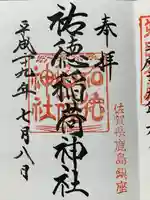 奉拝
佐賀県鹿島鎮座
祐徳稲荷神社
平成二十九年七月八日